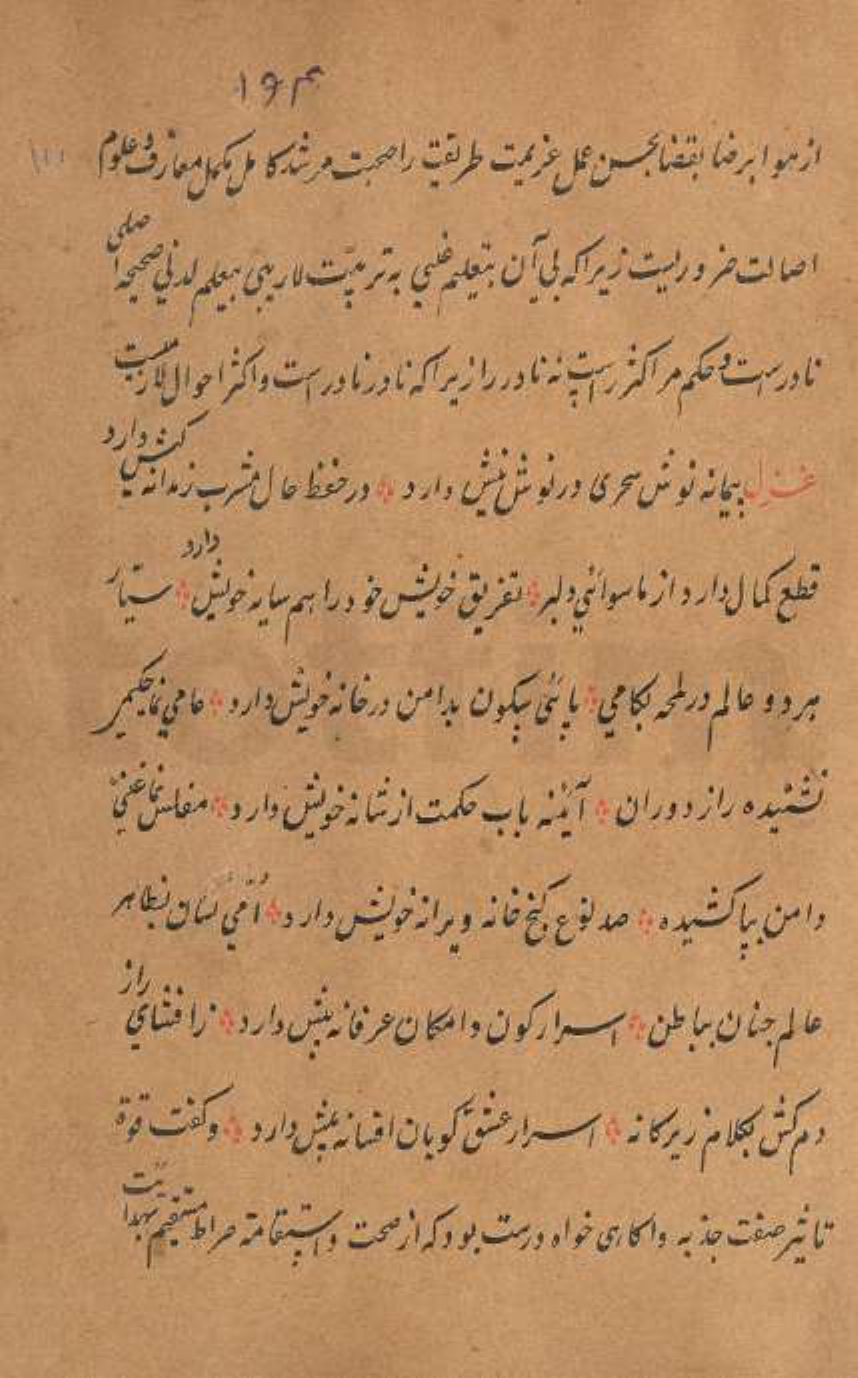 ۱۶۳
از هوا برضا بقضا بحسن عمل عزیمت طریقت را صحبت مرشد کامل مکمل معارف و علوم
اصالت ضروریست زیرا که بی آن بتعلیم غیبی به تربیّت لاریبی بعلم لدنی صحیحه اصلی
نادرست و حکم مر اکثر راست نه نادر را زیرا که نادر نادر است و اکثر احوال لازمیست
غزل پیمانه نوش سحری در نوش نیش دارد در حفظ حال مشرب رندانه کیش دارد
قطع کمال دارد از ماسوائی دلبر تفریق خویش خود را هم سایه خویش دارد سیّار
هر دو عالم در لمحه بکامی پائی سکون بدامن در خانه خویش دارد عامی نما حکیم
نشنیده راز دوران آئینه باب حکمت از شانه خویش دارد مفلس نما غنی
دامن بپا کشیده صد نوع گنج خانه ویرانه خویش دارد اُمّی لسان بظاهر
عالم جنان بباطن اسرار کون و امکان عرفانه پیش دارد ز افشای راز
دم کش بکلام زیرکانه اسرار عشق گویان افسانه پیش دارد و گفت قوة
تاثیر صفت جذبه و اکاری خواه درست بود که از صحت و استقامة صراط مستقیم بهدایت